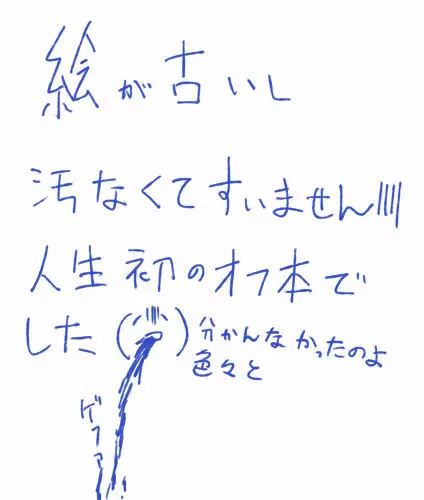 絵が古いし
汚なくてすいません||||
人生初のオフ本で
した( )分かんなかったのよ
色々と
ゲファ!